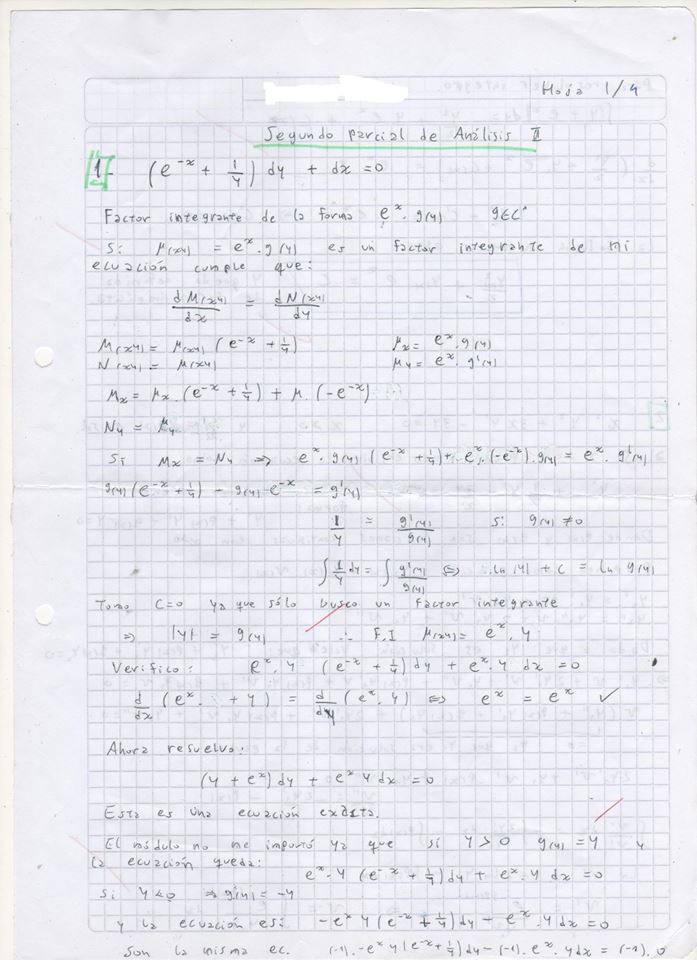 Hoja 1/4
Segundo parcial de Análisis II
1- (e^-x + 1/y) dy + dx = 0
Factor integrante de la forma e^x . g(y) g∈C'
Si μ(xy) = e^x . g(y) es un factor integrante de mi
ecuación cumple que:
dM(xy)/dx = dN(xy)/dy
M(xy) = μ(xy) (e^-x + 1/y) μx = e^x . g(y)
N(xy) = μ(xy) μy = e^x . g'(y)
Mx = μx . (e^-x + 1/y) + μ . (-e^-x)
Ny = μy
Si Mx = Ny => e^x . g(y) (e^-x + 1/y) + e^x . (-e^-x) . g(y) = e^x . g'(y)
g(y) (e^-x + 1/y) - g(y) e^-x = g'(y)
1/y = g'(y)/g(y) si g(y) ≠ 0
∫ 1/y dy = ∫ g'(y)/g(y) <=> ln |y| + C = ln g(y)
Tomo C=0 ya que sólo busco un factor integrante
=> |y| = g(y) ∴ F.I μ(xy) = e^x . y
Verifico: e^x . y (e^-x + 1/y) dy + e^x . y dx = 0
d/dx (e^x + y) = d/dy (e^x . y) <=> e^x = e^x ✓
Ahora resuelvo:
(y + e^x) dy + e^x y dx = 0
Esta es una ecuación exacta.
El módulo no me importó ya que si y > 0 g(y) = y y
la ecuación queda:
e^x . y (e^-x + 1/y) dy + e^x . y dx = 0
si y < 0 => g(y) = -y
y la ecuación es: -e^x y (e^-x + 1/y) dy - e^x . y dx = 0
Son la misma ec. (-1) . -e^x y (e^-x + 1/y) dy - (-1) . e^x . y dx = (-1) . 0